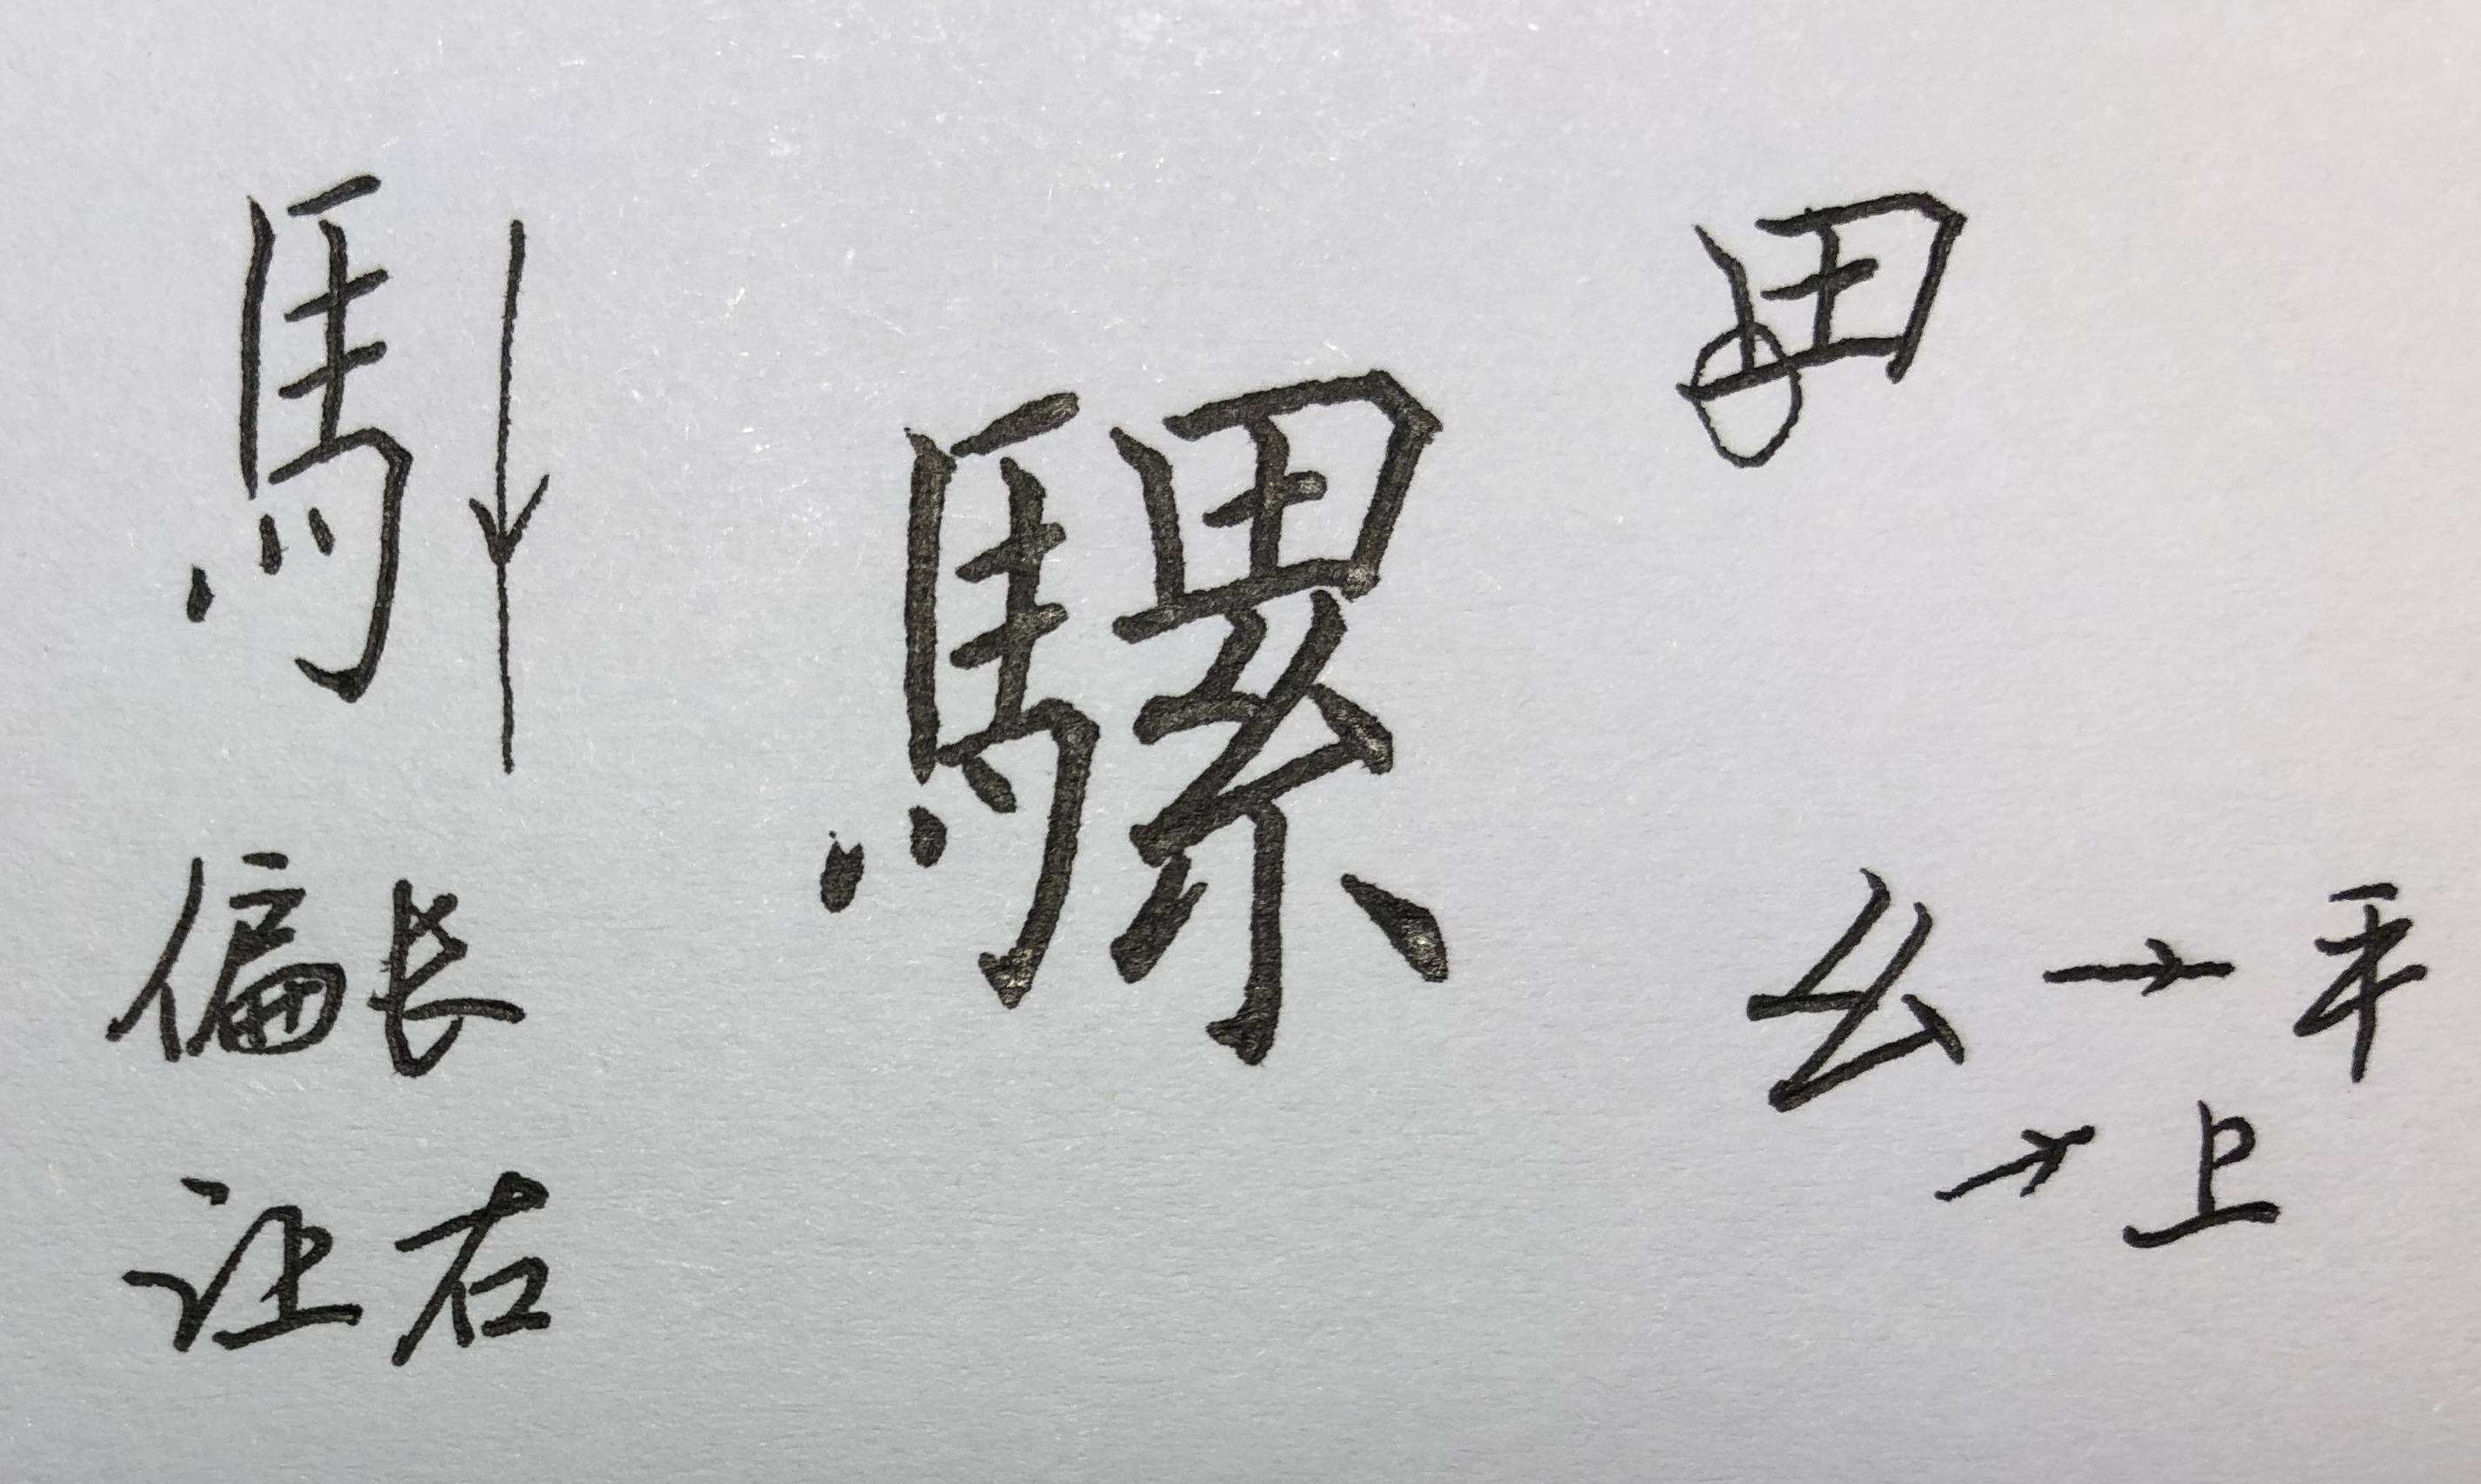 馬
偏长
让右
騾
田
幺 → 平
→ 上